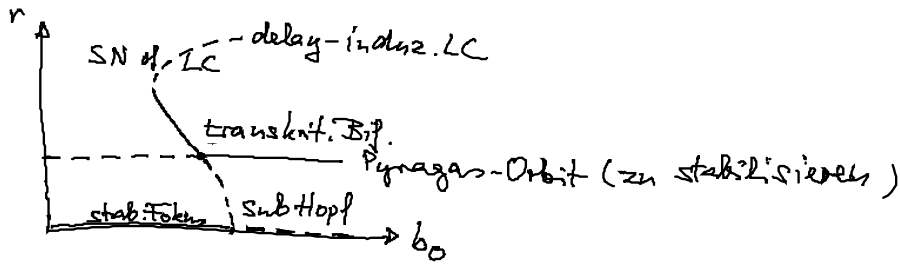 r
delay-induz. LC
SN of LC
transkrit. Bif.
Pyragas-Orbit (zu stabilisieren)
stab. Fokus
sub Hopf
b₀